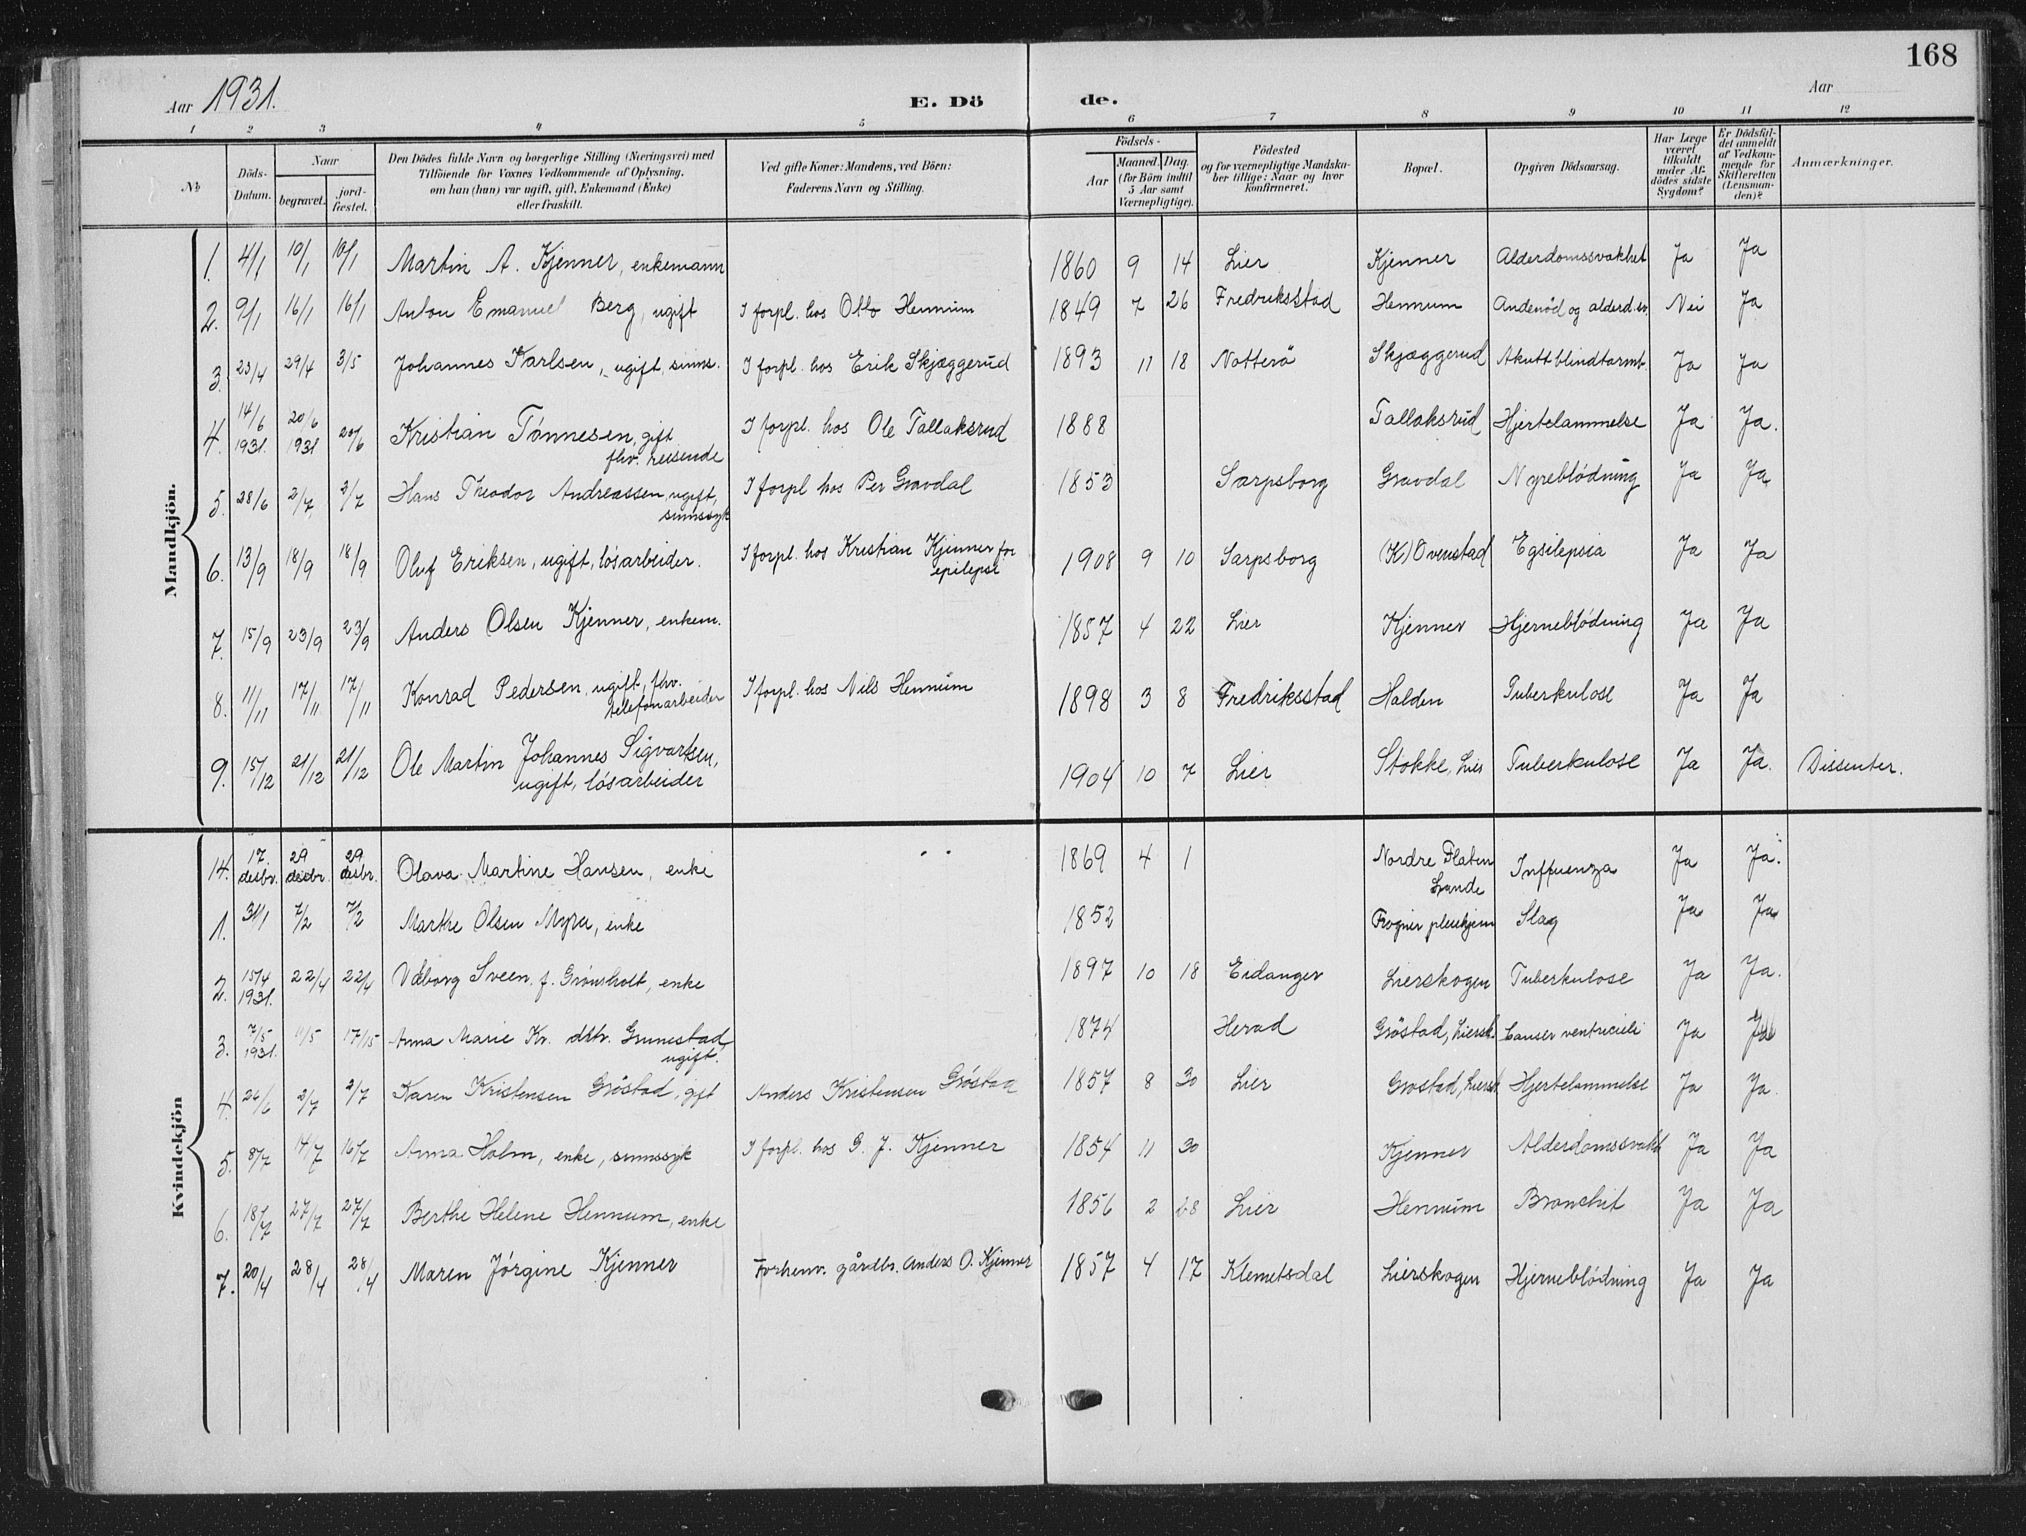 168
Aar 1931. E. Dö de. Aar
1 2 3 4 5 6 7 8 9 10 11 12
№ Döds-Datum. Naar begravet. jord-fæstet. Den Dödes fulde Navn og borgerlige Stilling (Næringsvei) med Tilföiende for Voxnes Vedkommende af Oplysning, om han (hun) var ugift, gift, Enkemand (Enke) eller fraskilt. Ved gifte Koner: Mandens, ved Börn: Faderens Navn og Stilling. Födsels- Aar Maaned. Dag. (for Börn indtil 5 Aar samt Værnepligtige). Födested og for værnepligtige Mandskaber tillige: Naar og hvor konfirmeret. Bopæl. Opgiven Dödsaarsag. Har Læge været tilkaldt under Afdödes sidste Sygdom? Er Dödsfaldet anmeldt af Vedkommende for Skifteretten (Lensmanden)? Anmærkninger.
Mandkjön.
1. 4/1 10/1 10/1 Martin A. Kjenner, enkemann 1860 9 14 Lier Kjenner Alderdomssvakhet Ja Ja
2. 9/1 16/1 16/1 Anton Emanuel Berg, ugift I forpl. hos Otto Hennum 1849 7 26 Fredriksstad Hennum Andenöd og alderd.sv. Nei Ja
3. 23/4 29/4 3/5 Johannes Karlsen, ugift, sinns. I forpl. hos Erik Skjæggerud 1893 11 18 Notterö Skjæggerud Akutt blindtarmb. Ja Ja
4. 14/6 1931. 20/6 1931 20/6 Kristian Tønnesen, gift I forpl. hos Ole Tallaksrud 1888 Tallaksrud Hjertelammelse Ja Ja.
fhv. reisende
5. 28/6 2/7 2/7 Hans Theodor Andreassen, ugift, I forpl hos Per Gravdal 1853 Sarpsborg Gravdal Nyreblödning Ja Ja
sinnssyk
6. 13/9 18/9 18/9 Oluf Eriksen, ugift, lösarbeider. I forpl. hos Kristian Kjenner for 1908 9 10 Sarpsborg (K) Ovenstad Egsilepsia Ja Ja
epilepsi
7. 15/9 23/9 23/9 Anders Olsen Kjenner, enkem. 1857 4 22 Lier Kjenner Hjerneblödning Ja Ja
8. 11/11 17/11 17/11 Konrad Pedersen, ugift, fhv. I forpl. hos Nils Hennum 1898 3 8 Fredriksstad Halden Tuberkulose Ja Ja
telefonarbeider
9. 15/12 21/12 21/12 Ole Martin Johannes Sigvartsen, 1904 10 7 Lier Stokke, Lier Tuberkulose Ja Ja. Dissenter.
ugift, lösarbeider
Kvindekjön
14. 17 desbr. 29 desbr. 29 desbr. Olava Martine Hansen, enke 1869 4 1 Nordre Flaten Influenza Ja Ja.
1. 31/1 7/2 7/2 Marthe Olsen Myra, enke 1852 Frogner pleiehjem Slag Ja Ja
2. 15/4 1931. 22/4 22/4 Valborg Sveen f. Grönsholt, enke 1897 10 18 Eidanger Lierskogen Tuberkulose Ja Ja.
3. 7/5 1931. 11/5 17/5 Anna Marie Kr. dtr. Grunnestad, 1874 Herad Gröstad, Liersk. Canser ventriculi Ja Ja
ugift.
4. 26/6 2/7 2/7 Karen Kristensen Gröstad, gift Anders Kristensen Gröstad 1857 8 30 Lier Grostad, Liersk. Hjertelammelse Ja Ja
5. 8/7 14/7 16/7 Anna Holm, enke, sinnssyk I forpl. hos G. J. Kjenner 1854 11 30 Kjenner Alderdomssvakh Ja Ja
6. 18/7 27/7 27/7 Berthe Helene Hennum, enke 1856 2 28 Lier Hennum Bronchit Ja Ja
7. 20/4 28/4 28/4 Maren Jörgine Kjenner Forhenv. gårdbr. Anders O. Kjenner 1857 4 17 Klemetsdal Lierskogen Hjerneblödning Ja Ja